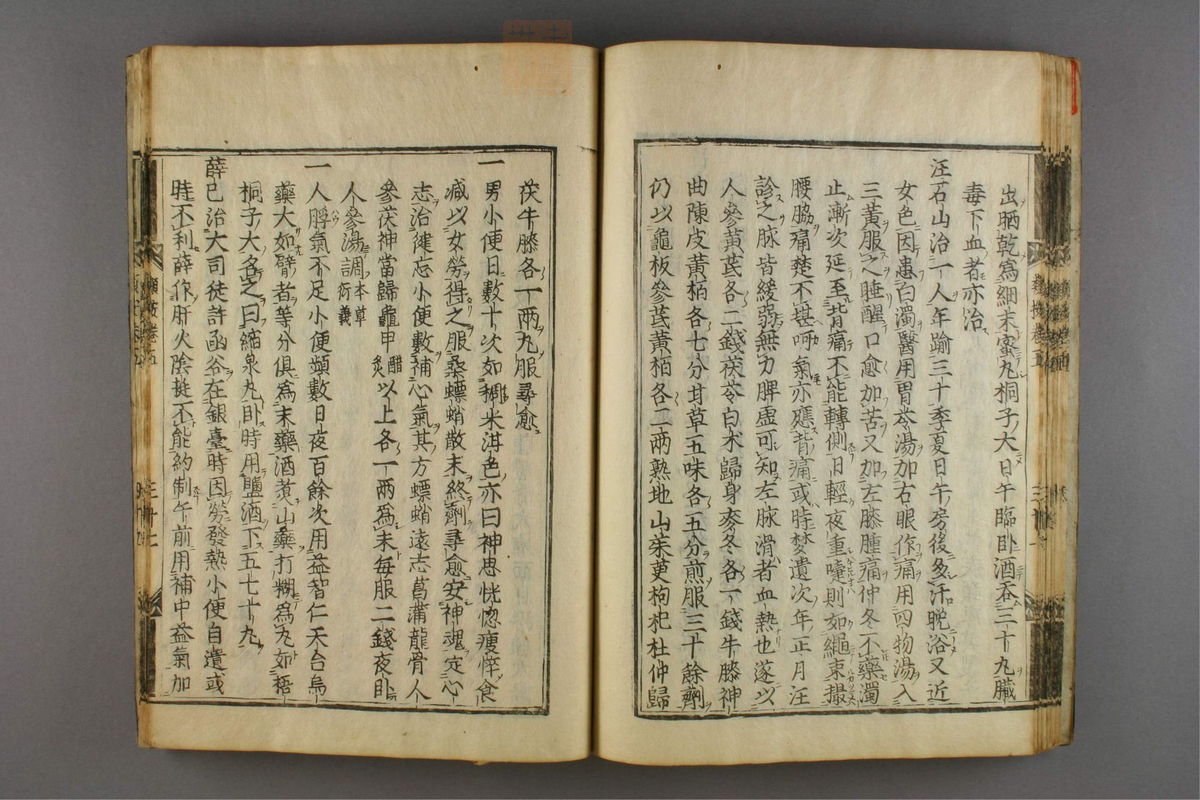 出晒乾爲細末蜜丸桐子大日午臨臥酒吞三十丸臟
毒下血者亦治
汪石山治一人年踰三十季夏日午房後多汗晩浴又近
女色因患白濁醫用胃苓湯加右眼作痛用四物湯入
三黃服之睡醒口愈加苦又加左膝腫痛仲冬不藥濁
止漸次延至背痛不能轉側日輕夜重嚏則如繩束撮
腰脇痛楚不堪呵氣亦應背痛或時夢遺次年正月汪
診之脉皆緩弱無力脾虛可知左脉滑者血熱也遂以
人參黃芪各二錢茯苓白朮歸身麥冬各一錢牛膝神
曲陳皮黃栢各七分甘草五味各五分煎服三十餘劑
仍以龜板參芪黃栢各二兩熟地山茱萸枸杞杜仲歸
茯牛膝各一兩丸服尋愈
一男小便日數十次如稠米泔色亦曰神思恍惚瘦悴食
減以女勞得之服桑螵蛸散末終劑尋愈安神魂定心
志治健忘小便數補心氣其方螵蛸遠志菖蒲龍骨人
參茯神當歸龜甲醋炙以上各一兩爲末每服二錢夜臥
人參湯調本草衍義
一人脬氣不足小便頻數日夜百餘次用益智仁天台烏
藥大如臂者等分俱爲末藥酒煮山藥打糊爲丸如梧
桐子大名之曰縮泉丸臥時用鹽酒下五七十丸
薛己治大司徒許函谷在銀臺時因勞發熱小便自遺或
時不利薛作肝火陰挺不能約制午前用補中益氣加